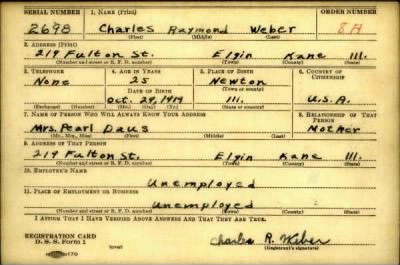 SERIAL NUMBER 1. NAME (Print) ORDER NUMBER
2698 Charles Raymond Weber 8A
(First) (Middle) (Last)
2. ADDRESS (Print)
219 Fulton St. Elgin Kane Ill.
(Number and street or R. F. D. number) (Town) (County) (State)
3. TELEPHONE 4. AGE IN YEARS 5. PLACE OF BIRTH 6. COUNTRY OF CITIZENSHIP
None 25 Newton
DATE OF BIRTH (Town or county)
Oct. 29, 1914 Ill. U.S.A.
(Exchange) (Number) (Mo.) (Day) (Yr.) (State or country)
7. NAME OF PERSON WHO WILL ALWAYS KNOW YOUR ADDRESS 8. RELATIONSHIP OF THAT PERSON
Mrs. Pearl Daus Mother
(Mr., Mrs., Miss) (First) (Middle) (Last)
9. ADDRESS OF THAT PERSON
219 Fulton St. Elgin Kane Ill.
(Number and street or R. F. D. number) (Town) (County) (State)
10. EMPLOYER'S NAME
Unemployed
11. PLACE OF EMPLOYMENT OR BUSINESS
Unemployed
(Number and street or R. F. D. number) (Town) (County) (State)
I AFFIRM THAT I HAVE VERIFIED ABOVE ANSWERS AND THAT THEY ARE TRUE.
REGISTRATION CARD
D. S. S. Form 1 (over) Charles R. Weber
(Registrant's signature)